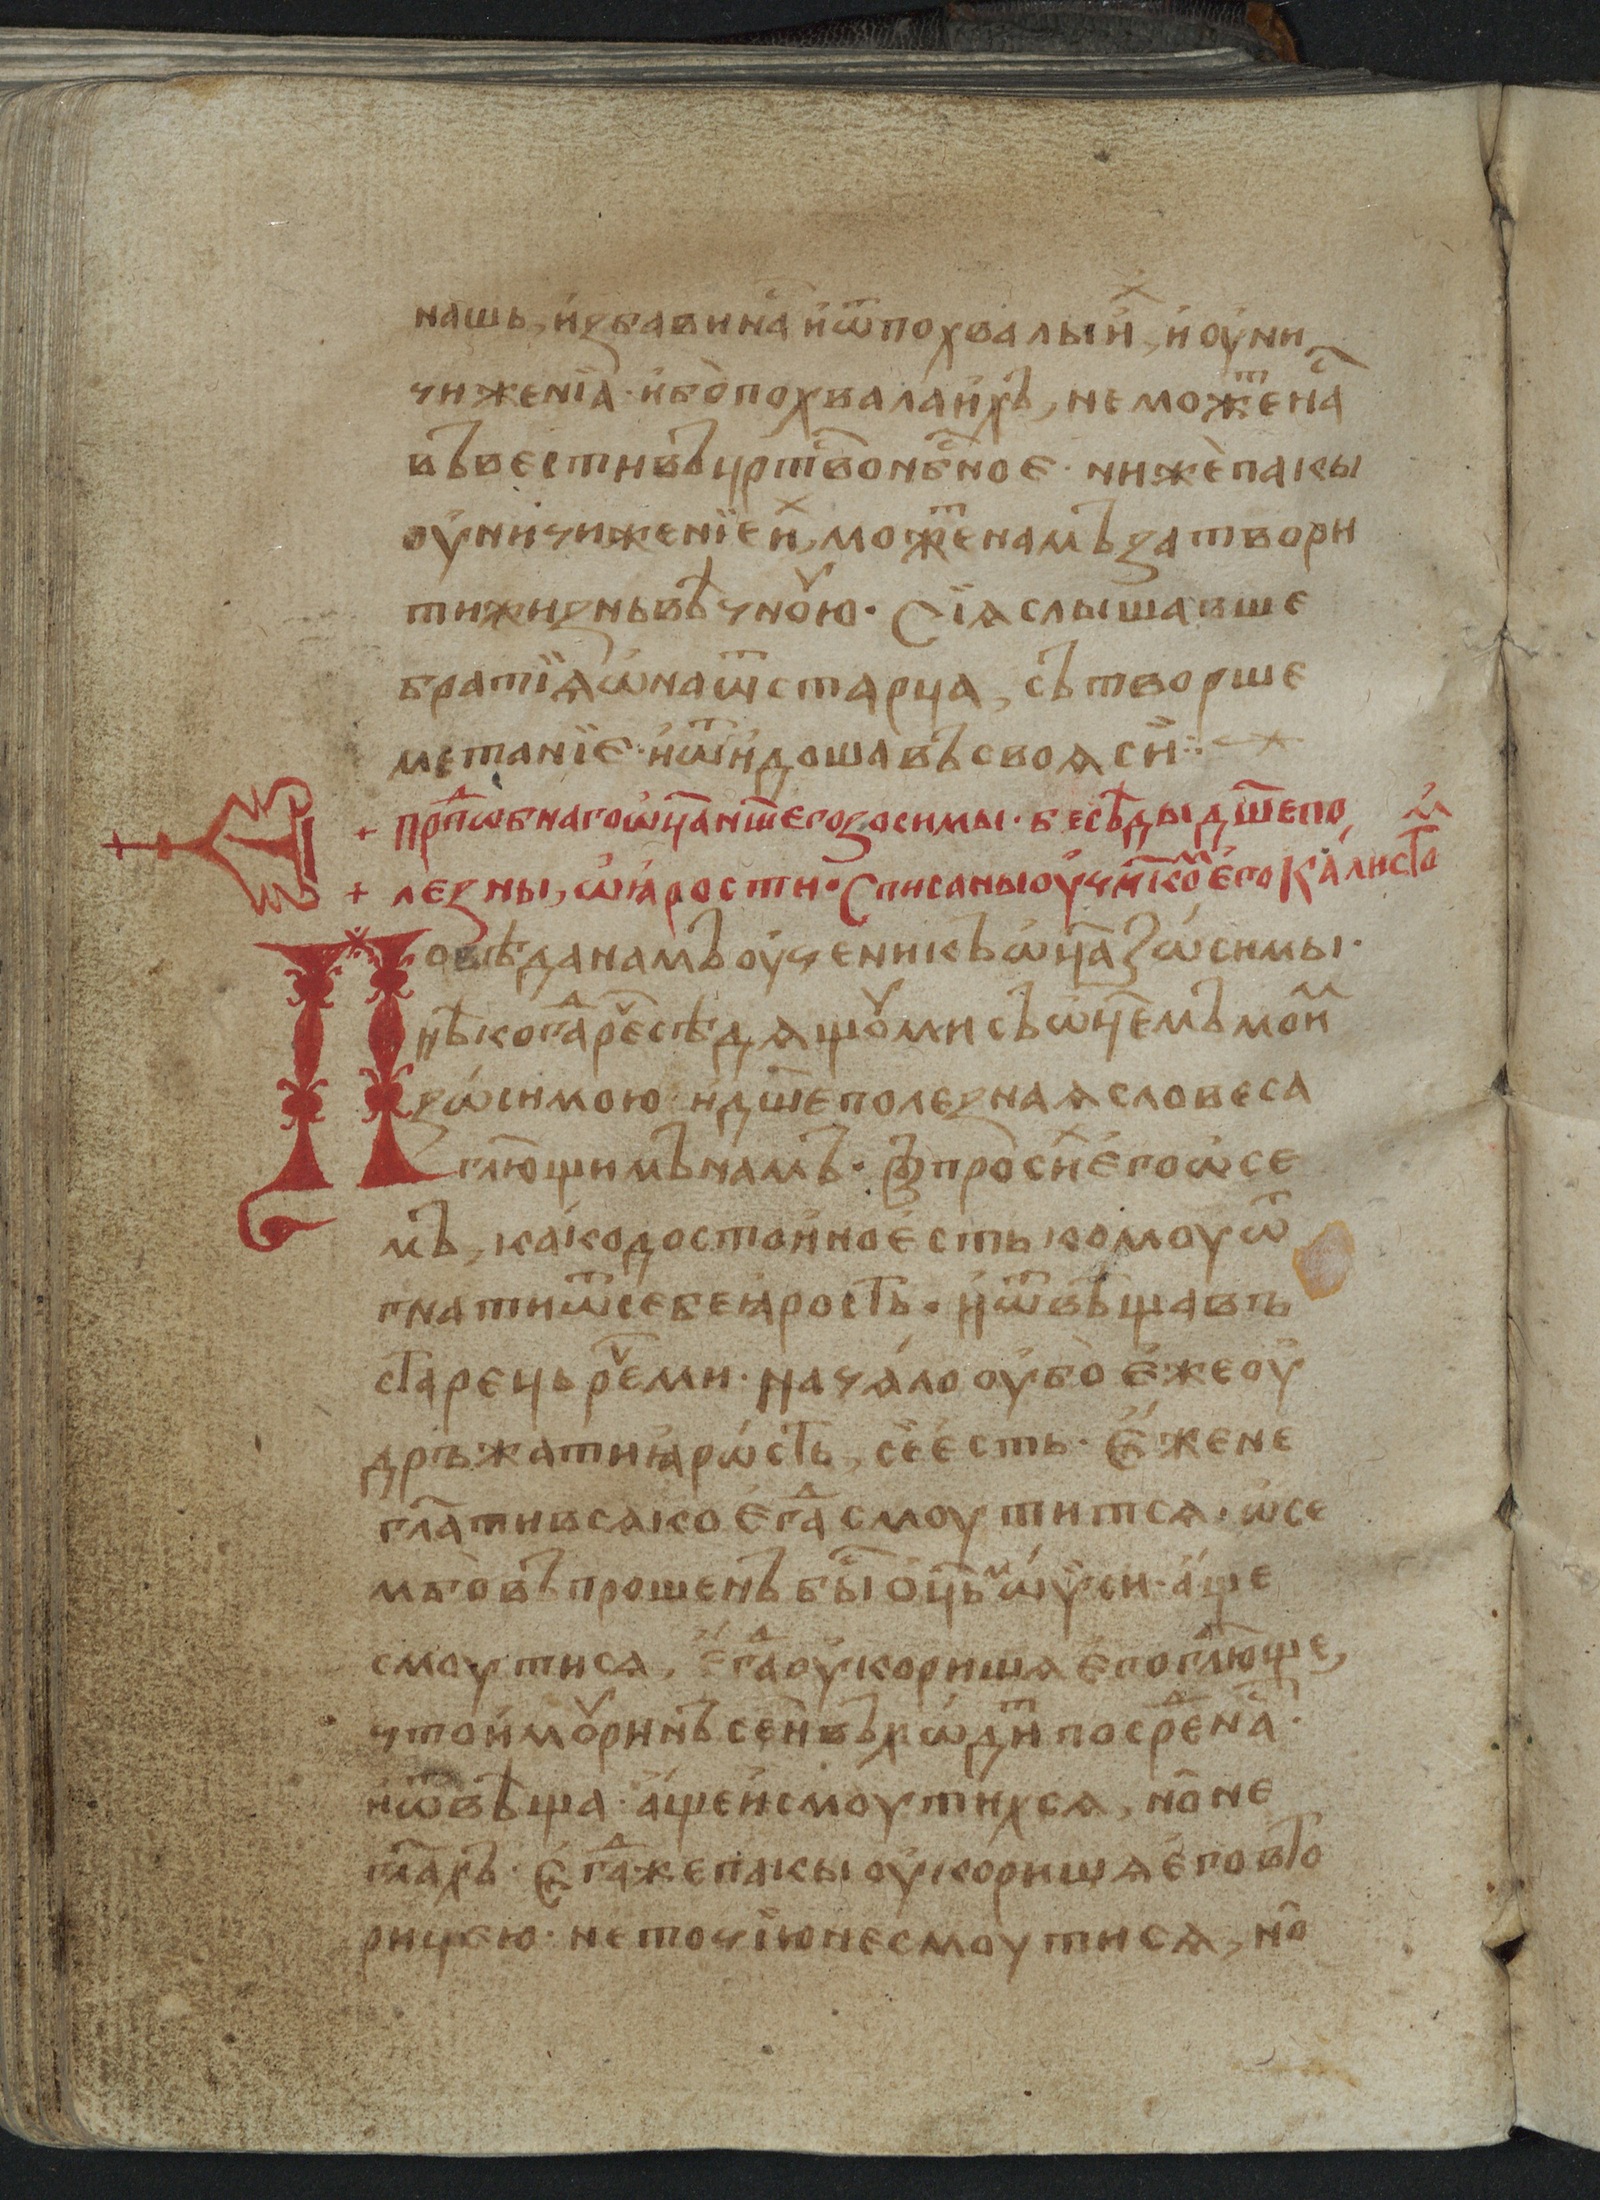 нашь, и҆збави на̑с и҆ ѿ похвалы и҆х, и҆ оу҆ни
чиженїа · и҆бо̀ похвала и҆хъ, не може́т на̑с
въвести въ црⷭ҇тво нбⷭ҇ное · нижѐ пакы
оу҆ничиженїе и҆х, може́т намъ затвори
ти жизнь вѣчноую · Сїѧ слышавше
братїѧ ѡ҆на ѿ старца, сътворше
метанїе · и҆ ѿидоша въ своѧ си ⁘
+ прпⷣѡбнаго ѡ҆ц҃а нш҃его зосимы · бесѣды дш҃епо
+ лезны, ѡ҆ ꙗ҆рости · Списаны оу҆ч҃нкоⷨ е҆го Кали́стоⷨ
Повѣда намъ оу҆ченикъ ѡ҆ц҃а Зѡ́симы ·
нѣкогⷣа рече сѣдѧщꙋ ми съ ѡ҆ц҃емъ моиⷨ
зѡ́симою · и҆ дш҃еполезнаѧ словеса
гл҃ющимъ намъ · Въпросиⷯ е҆го ѡ҆ се
мъ, ка́ко достоино е҆сть комоу ѿ
гнати ѿ себе ꙗ҆рость · и҆ ѿвѣщавъ
старець рече ми · Нача́ло оу҆бо̀ е҆же оу҆
дръжати ꙗ҆рѡ́сть, се́ е҆сть · Е҆́же не
гл҃ати всѧко е҆гⷣа смоутитсѧ · ѡ҆ се
м бо въпрошенъ быⷭ҇ ѡ҆ц҃ь мѡѷси · а҆́ще
смоутисѧ, е҆гⷣа оу҆коришѧ е҆го гл҃юще,
что и҆ моу́ринъ сеи въхѡ́диⷮ посреⷣ наⷭ҇ ·
и҆ ѿвѣща · а҆́ще и҆ смоути́хсѧ, но̑ не
гл҃ахъ · Е҆гⷣа же пакы оу҆коришѧ е҆го вто
рицею · не точїю не смоутисѧ, но̑